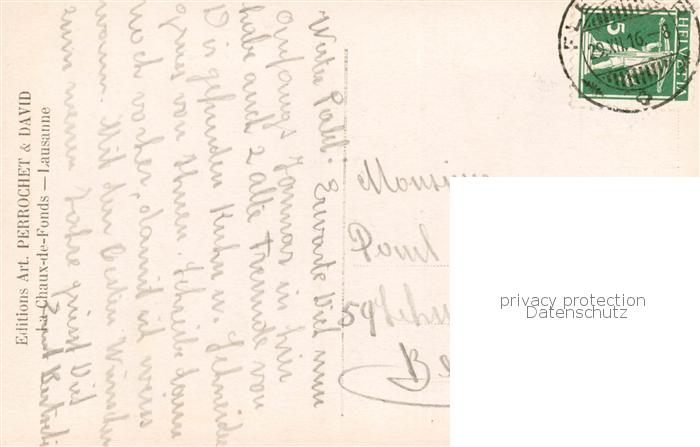 Werter Paul! Erwarte Dich nun
anfangs Januar in hier
habe auch 2 alte Freunde von
Dir gefunden Kuhn u. Schneider
von Ihnen. Schreibe dann
noch vorher, damit ich weiss
wann. Mit den besten Wünschen
zum neuen Jahre grüsst Dich
Editions Art. PERROCHET & DAVID
La Chaux-de-Fonds — Lausanne
HELVETIA
5
29.XII.16.-8
Monsieur
Paul
59
Be
privacy protection
Datenschutz